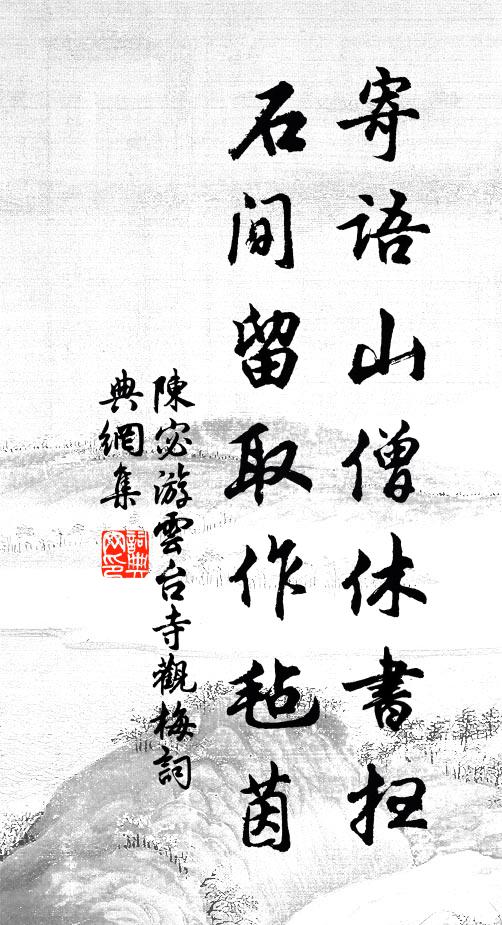 寄語山僧休書扫
石間留取作毡茵
陳宓游雲台寺觀梅詞
典網集
詞典
网印